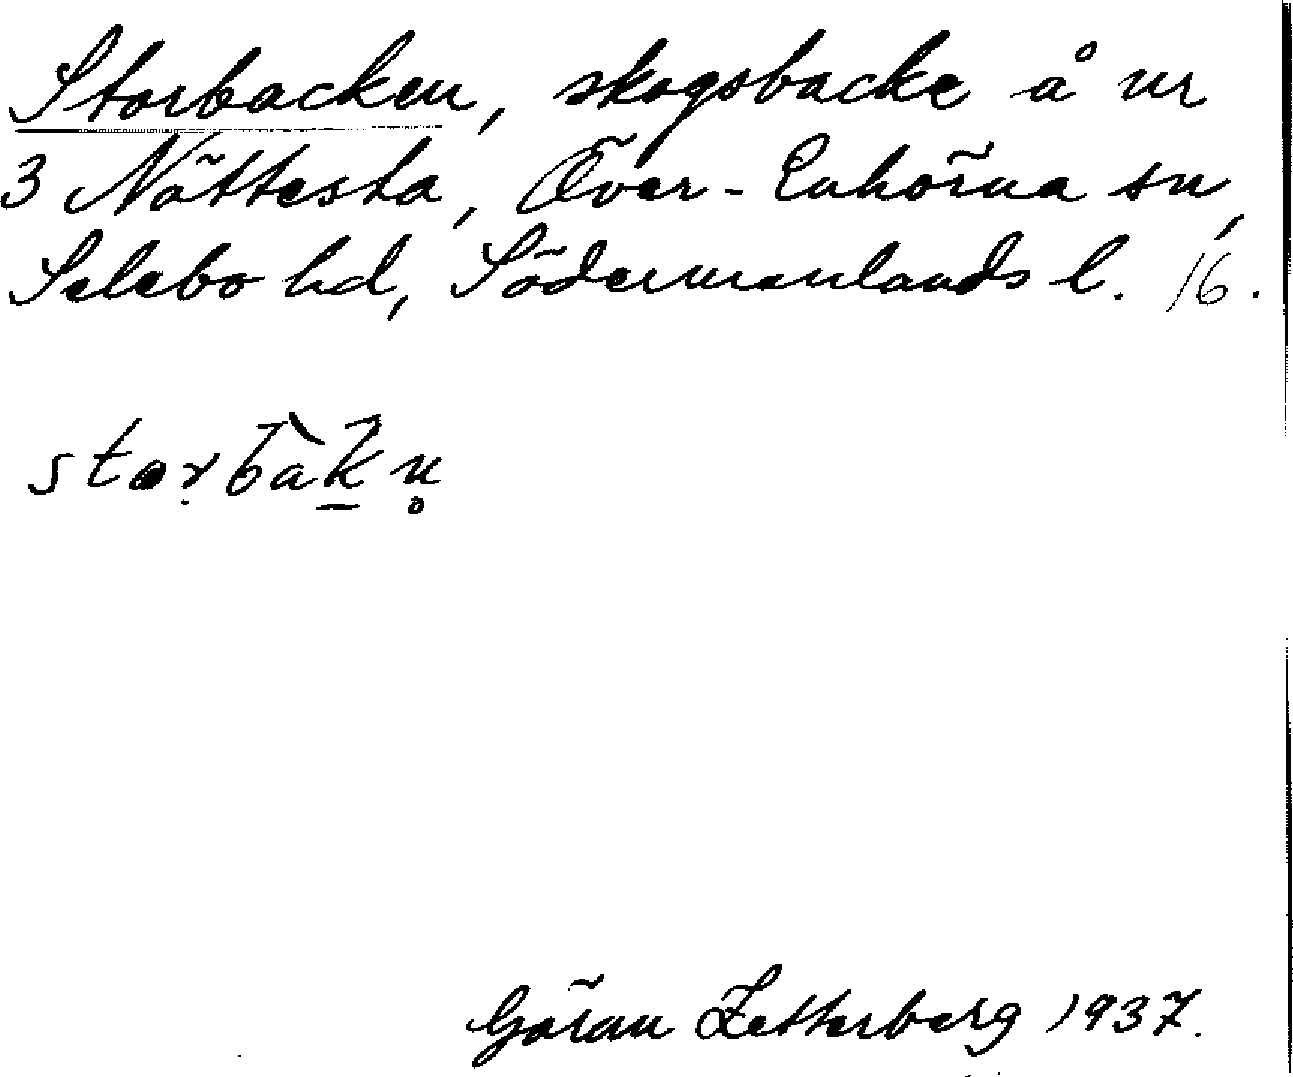 Storbacken, skogsbacke å nr
3 Nättesta, Över-Enhörna sn,
Selebo hd, Södermanlands l. 16.
storbàk̲n̥
Göran Zetterberg 1937.